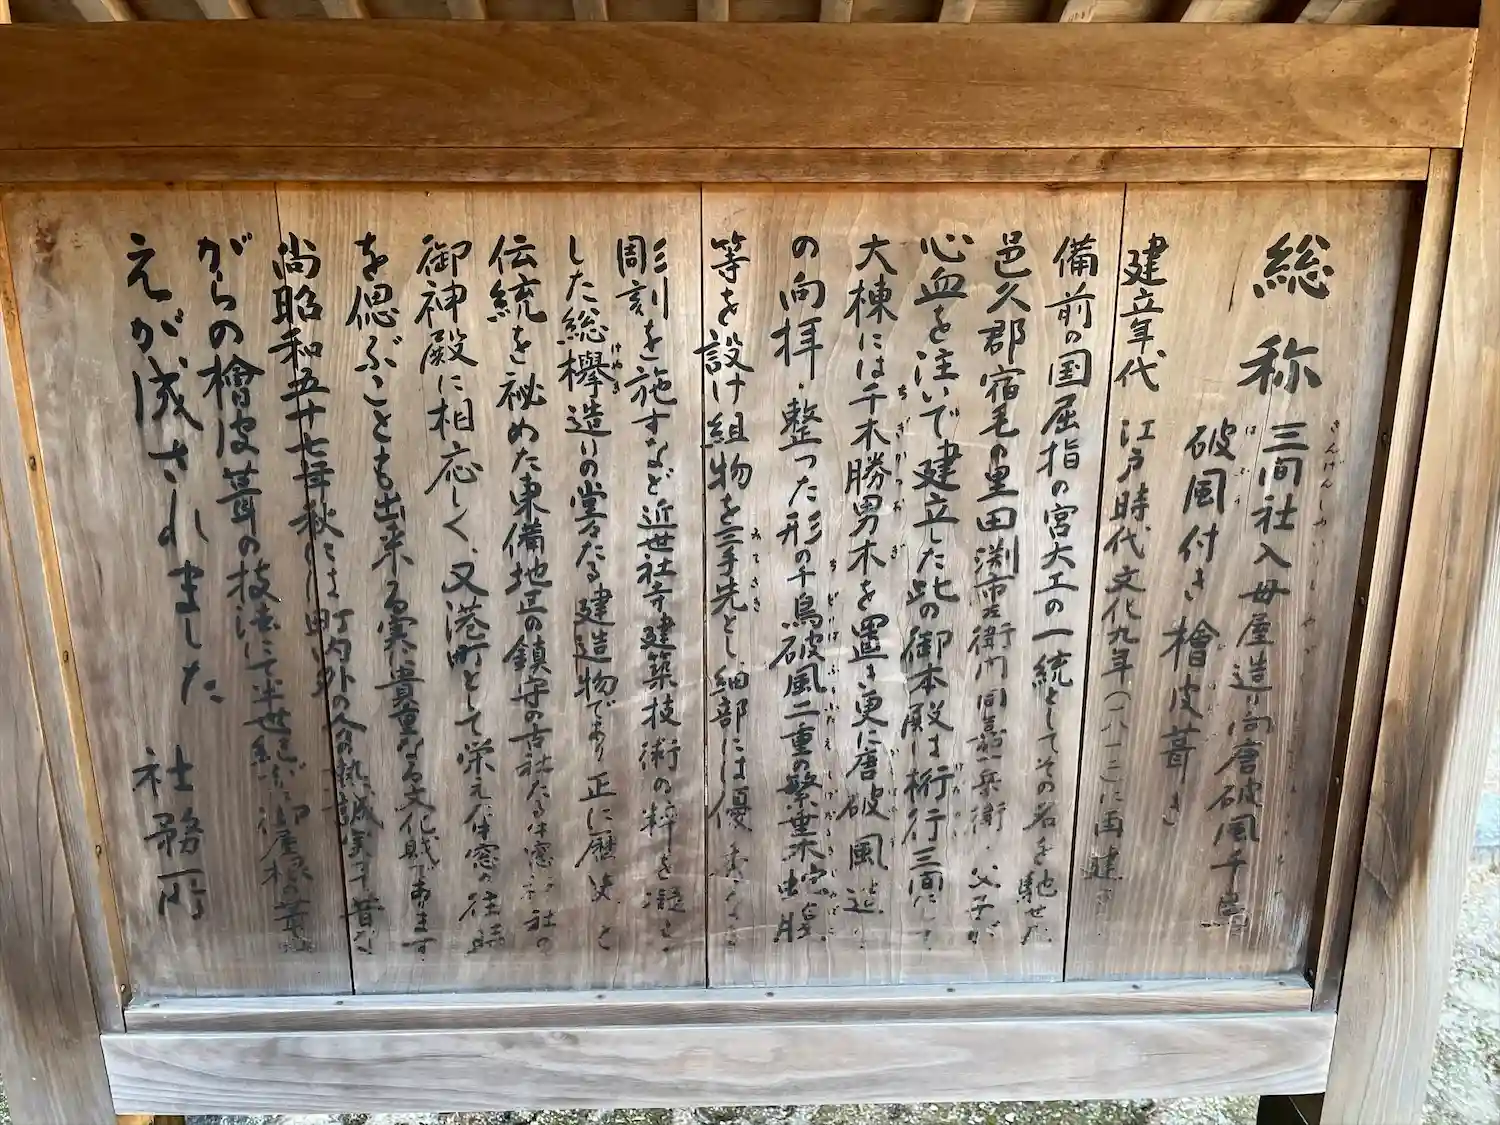 総称 三間社入母屋造り向唐破風千鳥
破風付き檜皮葺き
建立年代 江戸時代文化九年(一八一二)に再建
備前の国屈指の宮大工の一統としてその名を馳せた
邑久郡宿毛の里田淵市左衛門同 兵衛、父子が
心血を注いで建立した此の御本殿は桁行三間にして
大棟には千木勝男木を置き更に唐破風造
の向拝、整った形の千鳥破風二重の繁垂木 蟇股
等を設け組物を三手先とし細部には優
彫刻を施すなど近世社寺建築技術の粋を凝し
した総欅造りの堂々たる建造物であり正に歴史と
伝統を秘めた東備地区の鎮守の古社たる 神社の
御神殿に相応しく、又港町として栄えた 窓の往時
を偲ぶことも出来る実に貴重なる文化財であります
尚昭和五十七年秋には町内外の 熱誠 昔な
がらの檜皮葺の技法にて半世紀ぶりに御屋根の葺
えが成されました 社務所